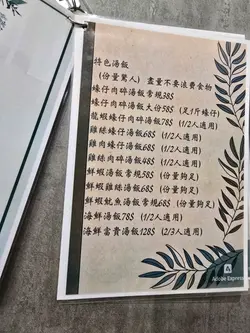 特色湯飯
(份量驚人) 盡量不要浪费食物
蠔仔肉碎湯飯常規38$
蠔仔肉碎湯飯大份58$ (足1斤蠔仔)
龍蝦蠔仔肉碎湯飯78$ (1/2人適用)
雞絲蠔仔湯飯68$ (1/2人適用)
雞肉蠔仔湯飯68$ (1/2人適用)
雞絲肉碎湯飯48$ (1/2人適用)
鮮蝦湯飯常規58$ (份量夠足)
鮮蝦雞絲湯飯68$ (份量夠足)
鮮蝦魷魚湯飯常規68$ (份量夠足)
海鮮湯飯78$ (1/2人適用)
海鮮富貴湯飯128$ (2/3人適用)
Adobe Express